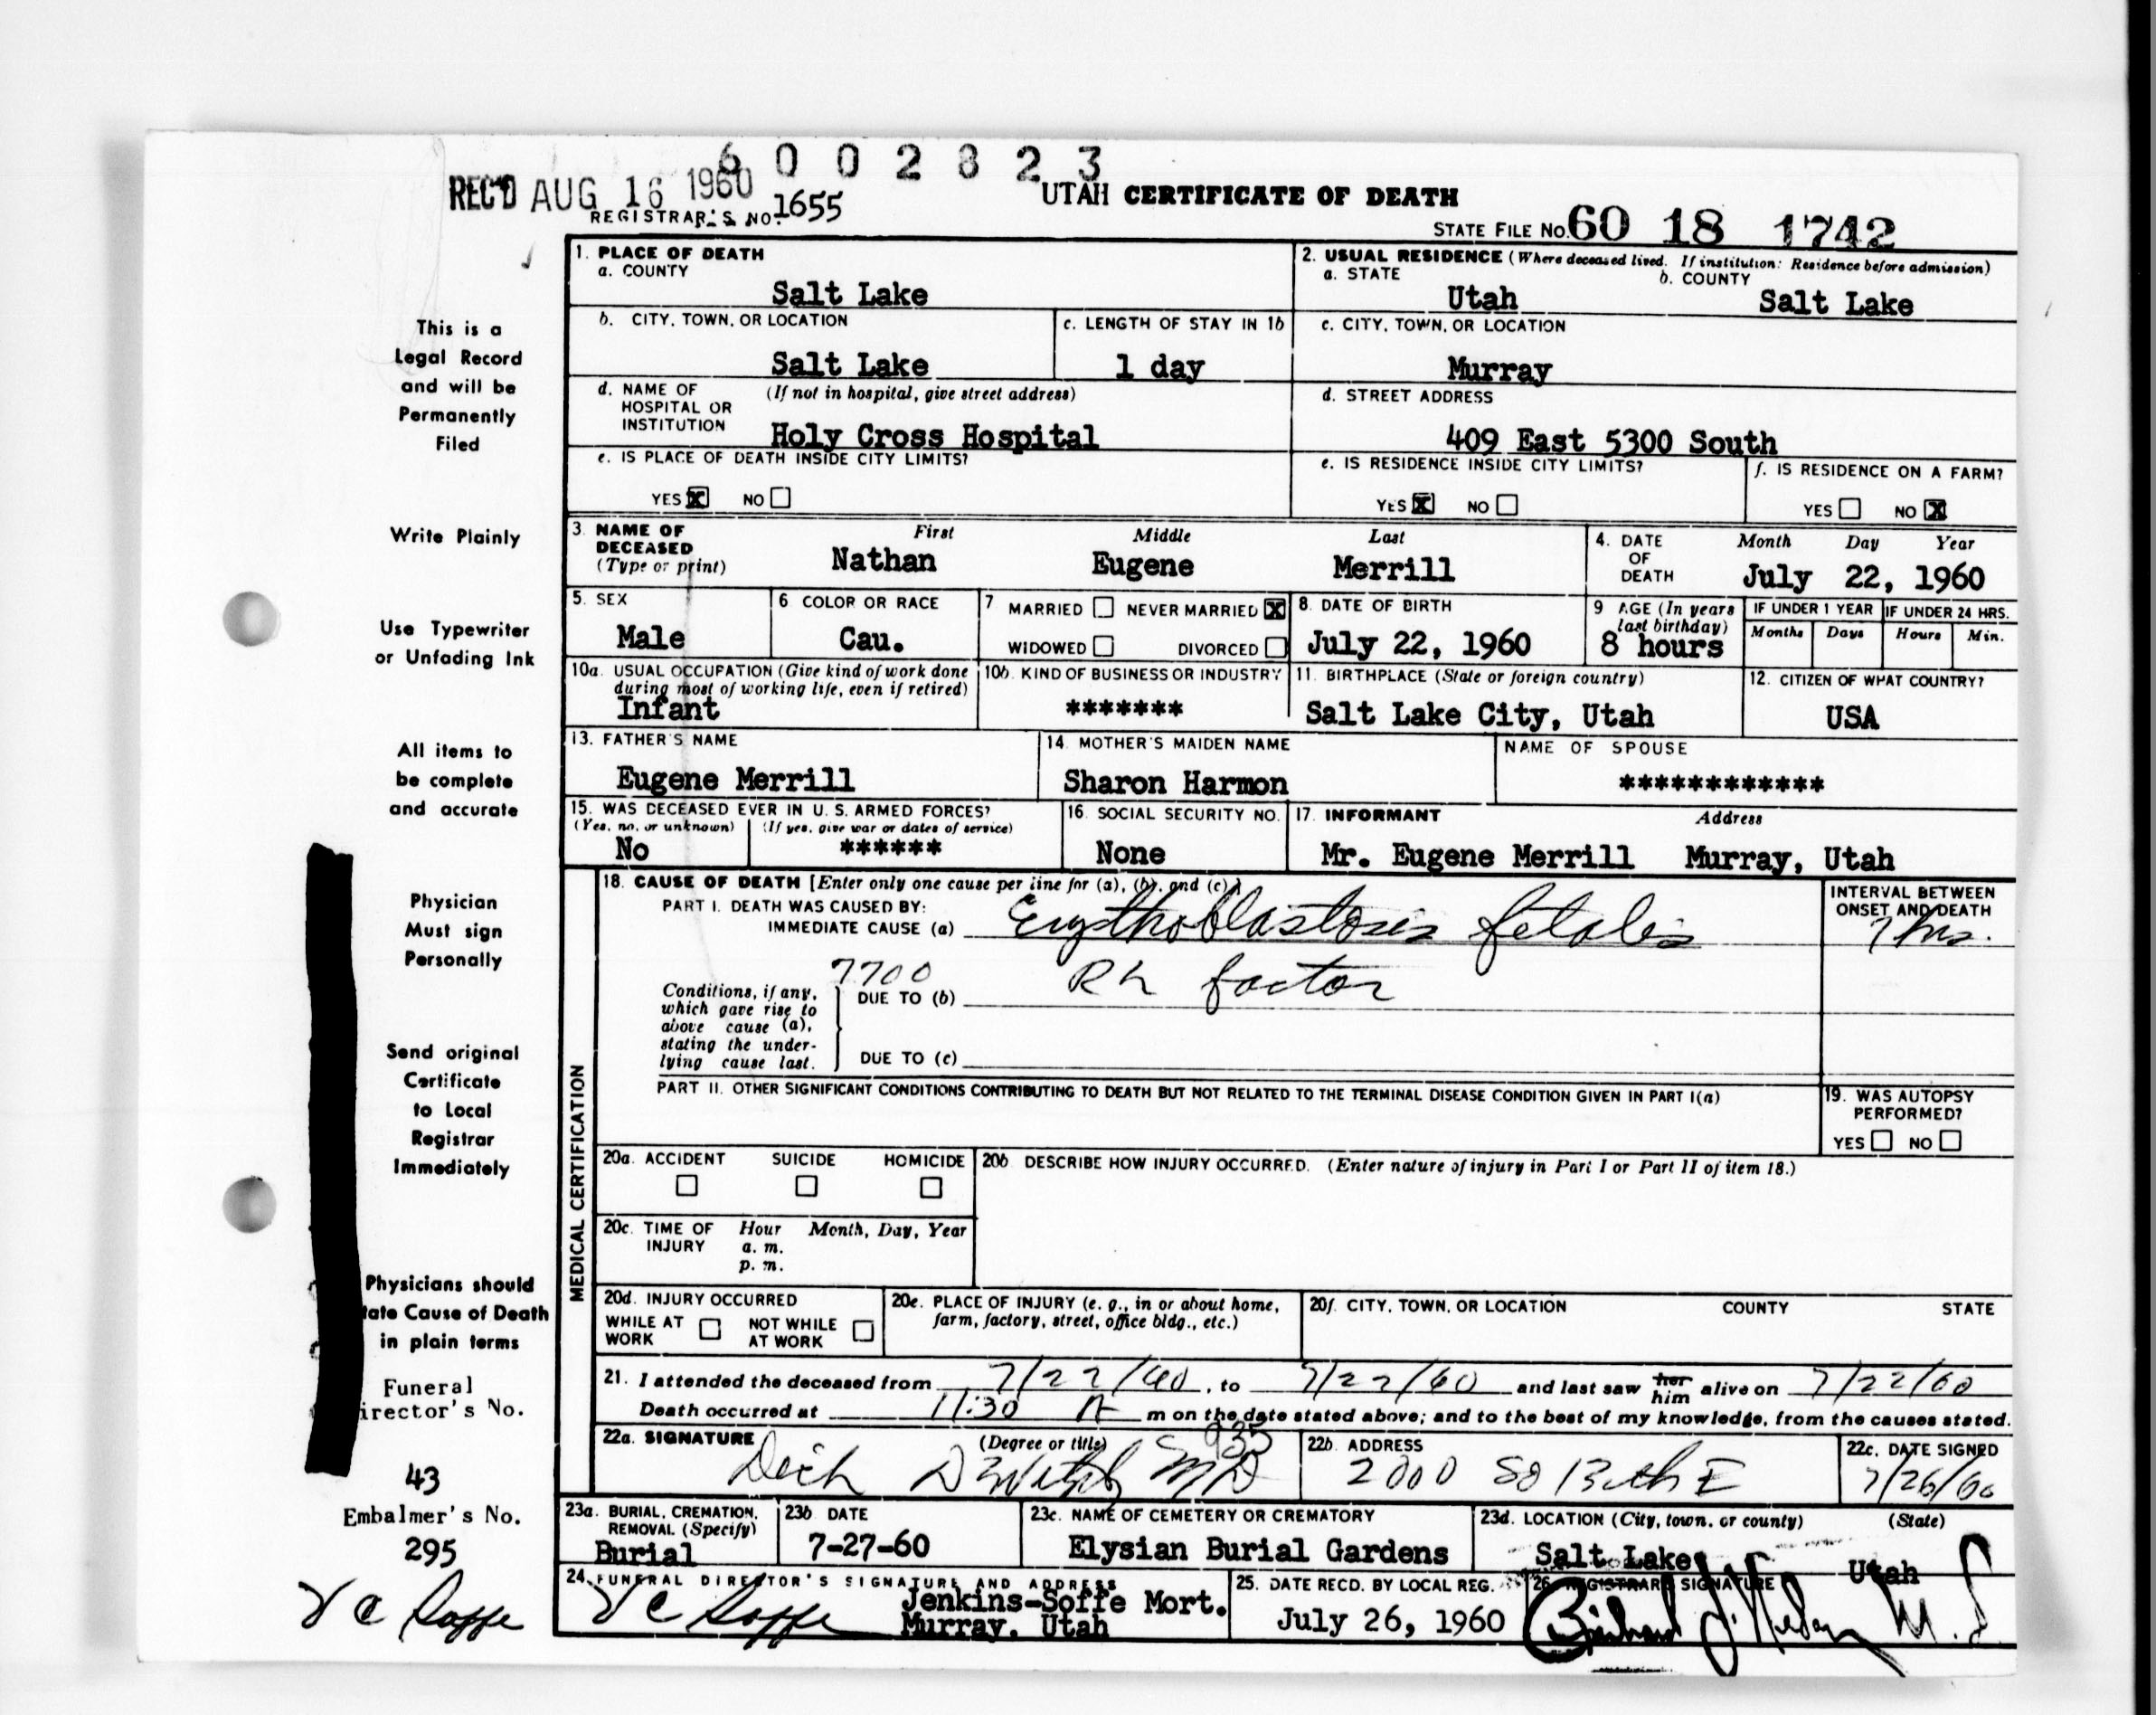 6002823
REC'D AUG 16 1960
REGISTRAR'S NO. 1655
UTAH CERTIFICATE OF DEATH
STATE FILE No. 60 18 1742
This is a
Legal Record
and will be
Permanently
Filed
Write Plainly
Use Typewriter
or Unfading Ink
All items to
be complete
and accurate
Physician
Must sign
Personally
Send original
Certificate
to Local
Registrar
Immediately
Physicians should
tate Cause of Death
in plain terms
Funeral
irector's No.
43
Embalmer's No.
295
V C Soffe
1. PLACE OF DEATH
a. COUNTY
Salt Lake
2. USUAL RESIDENCE (Where deceased lived. If institution: Residence before admission)
a. STATE b. COUNTY
Utah Salt Lake
b. CITY, TOWN, OR LOCATION
Salt Lake
c. LENGTH OF STAY IN 1b
1 day
c. CITY, TOWN, OR LOCATION
Murray
d. NAME OF (If not in hospital, give street address)
HOSPITAL OR
INSTITUTION
Holy Cross Hospital
d. STREET ADDRESS
409 East 5300 South
e. IS PLACE OF DEATH INSIDE CITY LIMITS?
YES X NO
e. IS RESIDENCE INSIDE CITY LIMITS?
YES X NO
f. IS RESIDENCE ON A FARM?
YES NO X
3. NAME OF
DECEASED
(Type or print)
First Middle Last
Nathan Eugene Merrill
4. DATE
OF
DEATH
Month Day Year
July 22, 1960
5. SEX
Male
6 COLOR OR RACE
Cau.
7 MARRIED NEVER MARRIED X
WIDOWED DIVORCED
8. DATE OF BIRTH
July 22, 1960
9 AGE (In years
last birthday)
8 hours
IF UNDER 1 YEAR
Months Days
IF UNDER 24 HRS.
Hours Min.
10a. USUAL OCCUPATION (Give kind of work done
during most of working life, even if retired)
Infant
10b. KIND OF BUSINESS OR INDUSTRY
*******
11. BIRTHPLACE (State or foreign country)
Salt Lake City, Utah
12. CITIZEN OF WHAT COUNTRY?
USA
13. FATHER'S NAME
Eugene Merrill
14. MOTHER'S MAIDEN NAME
Sharon Harmon
NAME OF SPOUSE
************
15. WAS DECEASED EVER IN U. S. ARMED FORCES?
(Yes, no, or unknown) (If yes, give war or dates of service)
No ******
16. SOCIAL SECURITY NO.
None
17. INFORMANT Address
Mr. Eugene Merrill Murray, Utah
MEDICAL CERTIFICATION
18. CAUSE OF DEATH [Enter only one cause per line for (a), (b), and (c).]
PART I. DEATH WAS CAUSED BY:
IMMEDIATE CAUSE (a) Erythoblastosis fetalis
INTERVAL BETWEEN
ONSET AND DEATH
7 hrs.
7700
Conditions, if any,
which gave rise to
above cause (a),
stating the under-
lying cause last.
DUE TO (b) Rh factor
DUE TO (c)
PART II. OTHER SIGNIFICANT CONDITIONS CONTRIBUTING TO DEATH BUT NOT RELATED TO THE TERMINAL DISEASE CONDITION GIVEN IN PART I(a)
19. WAS AUTOPSY
PERFORMED?
YES NO
20a. ACCIDENT SUICIDE HOMICIDE
20b DESCRIBE HOW INJURY OCCURRED. (Enter nature of injury in Part I or Part II of item 18.)
20c. TIME OF Hour Month, Day, Year
INJURY a. m.
p. m.
20d. INJURY OCCURRED
WHILE AT NOT WHILE
WORK AT WORK
20e. PLACE OF INJURY (e. g., in or about home,
farm, factory, street, office bldg., etc.)
20f. CITY, TOWN, OR LOCATION COUNTY STATE
21. I attended the deceased from 7/22/60, to 7/22/60 and last saw her him alive on 7/22/60
Death occurred at 11:30 A m on the date stated above; and to the best of my knowledge, from the causes stated.
22a. SIGNATURE (Degree or title) 935
MD
22b. ADDRESS
2000 So 13th E
22c. DATE SIGNED
7/26/60
23a. BURIAL, CREMATION,
REMOVAL (Specify)
Burial
23b DATE
7-27-60
23c. NAME OF CEMETERY OR CREMATORY
Elysian Burial Gardens
23d. LOCATION (City, town, or county) (State)
Salt Lake Utah
24. FUNERAL DIRECTOR'S SIGNATURE AND ADDRESS
V C Soffe Jenkins-Soffe Mort.
Murray, Utah
25. DATE RECD. BY LOCAL REG.
July 26, 1960
26. REGISTRAR'S SIGNATURE